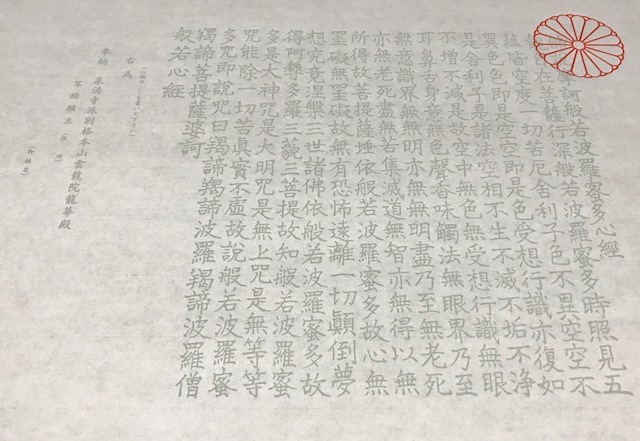 訶般若波羅蜜多心經
自在菩薩行深般若波羅蜜多時照見五
蘊皆空度一切苦厄舍利子色不異空空不
異色色即是空空即是色受想行識亦復如
是舍利子是諸法空相不生不滅不垢不浄
不增不減是故空中無色無受想行識無眼
耳鼻舌身意無色聲香味觸法無眼界乃至
無意識界無無明亦無無明盡乃至無老死
亦無老死盡無苦集滅道無智亦無得以無
所得故菩提薩埵依般若波羅蜜多故心無
罣礙無罣礙故無有恐怖遠離一切顛倒夢
想究竟涅槃三世諸佛依般若波羅蜜多故
得阿耨多羅三藐三菩提故知般若波羅蜜
多是大神咒是大明咒是無上咒是無等等
咒能除一切苦真實不虛故說般若波羅蜜
多咒即說咒曰羯諦羯諦波羅羯諦波羅僧
羯諦菩提薩婆訶
般若心經
右為
奉納 泉涌寺派別格本山雲龍院龍華殿
写経願主